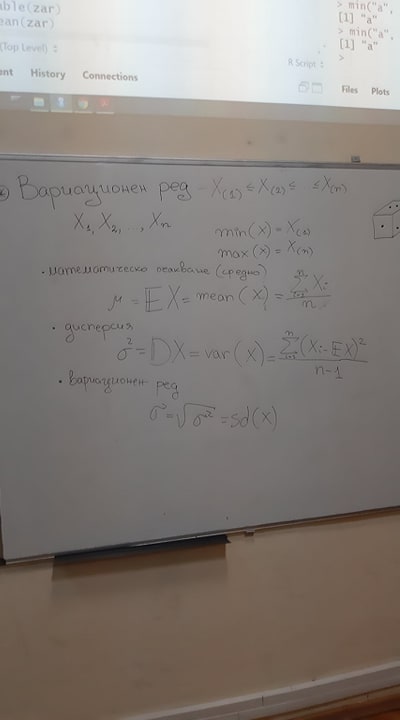 able(zar)
ean(zar)
(Top Level)
R Script
ent History Connections
> min("a",
[1] "a"
> min("a",
[1] "a"
>
Files Plots
Вариационен ред - X(1) ≤ X(2) ≤ ... ≤ X(n)
X1, X2, ..., Xn
min(x) = X(1)
max(x) = X(n)
• математическо очакване (средно)
μ = EX = mean(X) = ∑ᵢ₌₁ⁿ Xi / n
• дисперсия
σ² = DX = var(X) = ∑ᵢ₌₁ⁿ (Xi - EX)² / n-1
• вариационен ред
σ = √σ² = sd(X)